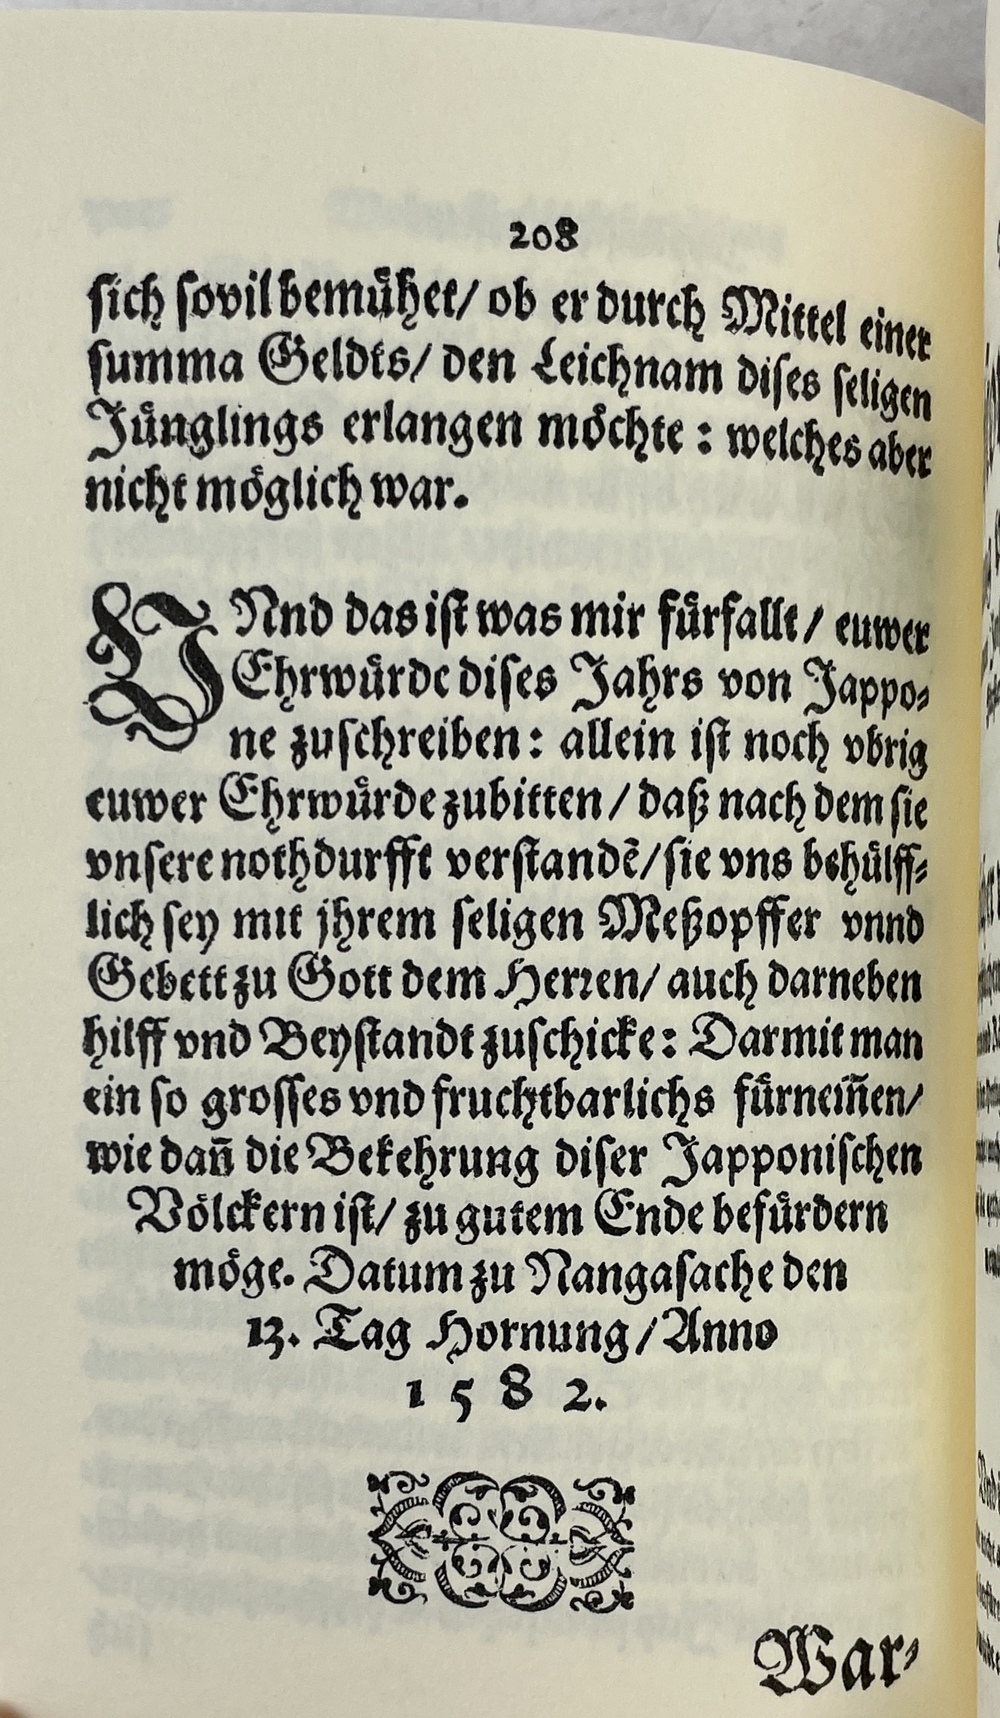 208
sich sovil bemůhet/ ob er durch Mittel einer
summa Geldts/ den Leichnam dises seligen
Jůnglings erlangen möchte : welches aber
nicht möglich war.
VNnd das ist was mir fůrfallt/ euwer
Ehrwůrde dises Jahrs von Jappo-
ne zuschreiben: allein ist noch vbrig
euwer Ehrwůrde zubitten/ daß nach dem sie
vnsere nothdurfft verstandẽ/ sie vns behůlff-
lich sey mit jhrem seligen Meßopffer vnnd
Gebett zu Gott dem Herren/ auch darneben
hilff vnd Beystandt zuschicke: Darmit man
ein so grosses vnd fruchtbarlichs fůrnem̃en/
wie dañ die Bekehrung diser Japponischen
Völckern ist/ zu gutem Ende befůrdern
möge. Datum zu Nangasache den
13. Tag Hornung/ Anno
1 5 8 2.
War-